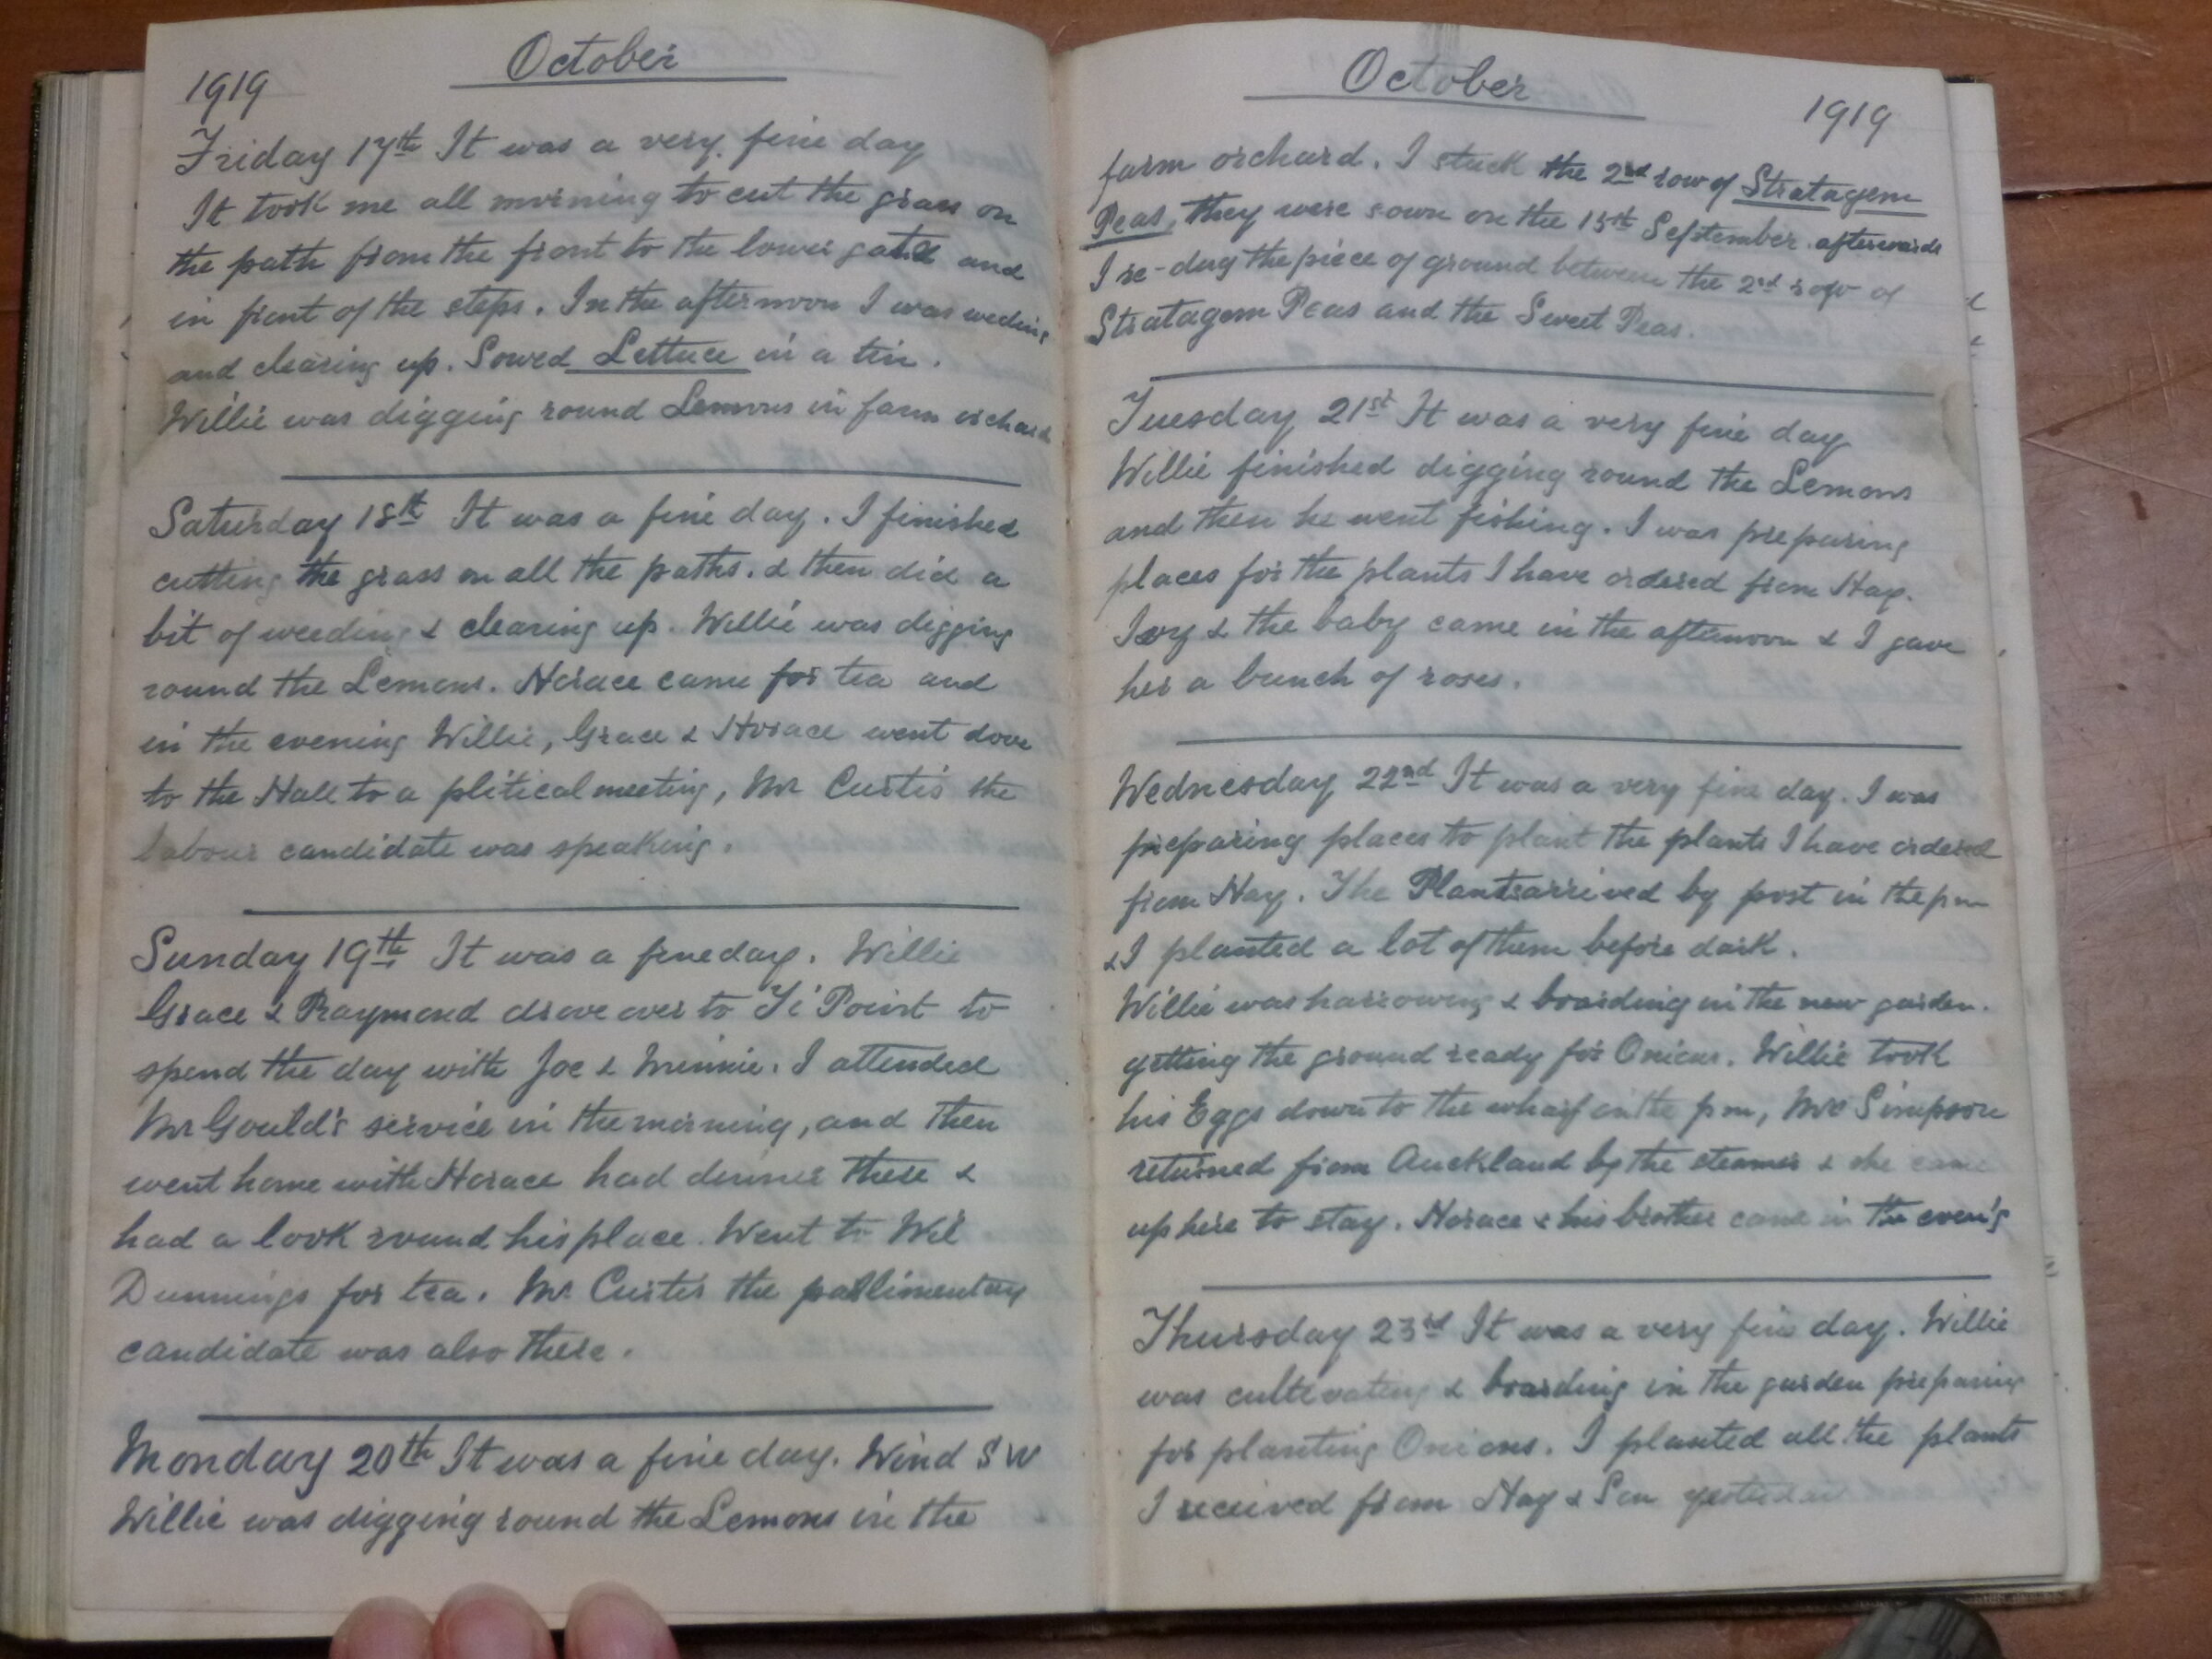 1919
October
Friday 17th It was a very fine day
It took me all morning to cut the grass on
the path from the front to the lower gate and
in front of the steps. In the afternoon I was weeding
and clearing up. Sowed Lettuce in a tin.
Willie was digging round Lemons in farm orchard
Saturday 18th It was a fine day. I finished
cutting the grass on all the paths. & then did a
bit of weeding & clearing up. Willie was digging
round the Lemons. Horace came for tea and
in the evening Willie, Grace & Horace went down
to the Hall to a plitical meeting, Mr Curtis the
labour candidate was speaking.
Sunday 19th It was a fine day. Willie
Grace & Raymond drove over to Ti Point to
spend the day with Joe & Minnie. I attended
Mr Gould's service in the morning, and then
went home with Horace had dinner there &
had a look round his place. Went to Wil
Dunnings for tea. Mr Curtis the parlimentary
candidate was also there.
Monday 20th It was a fine day. Wind S W
Willie was digging round the Lemons in the
October
1919
farm orchard. I stuck the 2nd row of Stratagem
Peas, they were sown on the 15th September. afterwards
I re-dug the piece of ground between the 2nd row of
Stratagem Peas and the Sweet Peas.
Tuesday 21st It was a very fine day
Willie finished digging round the Lemons
and then he went fishing. I was preparing
places for the plants I have ordered from Hay.
Ivy & the baby came in the afternoon & I gave
her a bunch of roses.
Wednesday 22nd It was a very fine day. I was
preparing places to plant the plants I have ordered
from Hay. The Plants arrived by post in the pm
& I planted a lot of them before dark.
Willie was harrowing & boarding in the new garden.
getting the ground ready for Onions. Willie took
his Eggs down to the wharf in the pm, Mrs Simpson
returned from Auckland by the steamer & she came
up here to stay. Horace & his brother came in the even'g
Thursday 23rd It was a very fine day. Willie
was cultivating & boarding in the garden preparing
for planting Onions. I planted all the plants
I received from Hay & Son yesterday